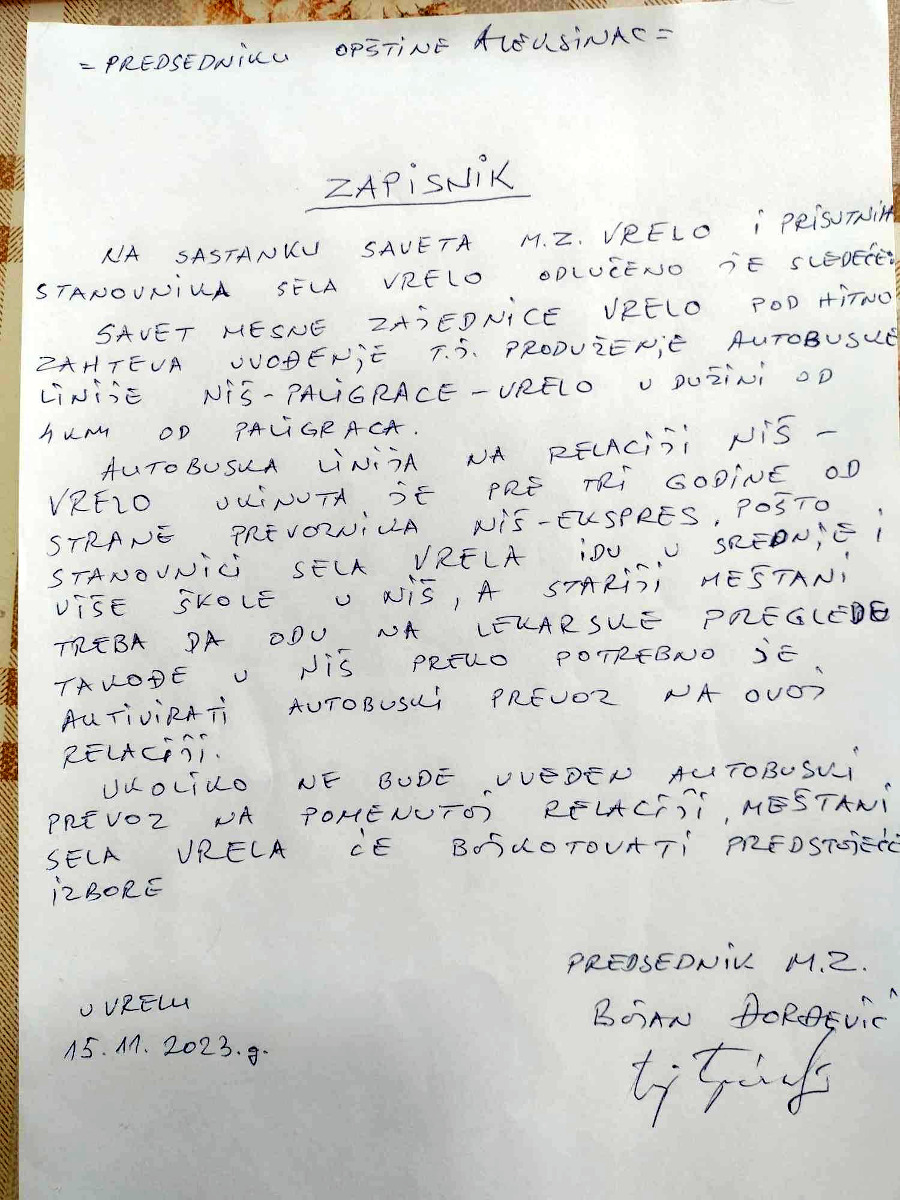 = PREDSEDNIKU OPŠTINE ALEKSINAC =
ZAPISNIK
NA SASTANKU SAVETA M.Z. VRELO I PRISUTNIH
STANOVNIKA SELA VRELO ODLUČENO JE SLEDEĆE:
SAVET MESNE ZAJEDNICE VRELO POD HITNO
ZAHTEVA UVOĐENJE T.J. PRODUŽENJE AUTOBUSKE
LINIJE NIŠ-PALIGRACE-VRELO U DUŽINI OD
4 KM OD PALIGRACA.
AUTOBUSKA LINIJA NA RELACIJI NIŠ -
VRELO UKINUTA JE PRE TRI GODINE OD
STRANE PREVOZNIKA NIŠ-EKSPRES, POŠTO
STANOVNICI SELA VRELA IDU U SREDNJE I
VIŠE ŠKOLE U NIŠ, A STARIJI MEŠTANI
TREBA DA ODU NA LEKARSKE PREGLEDE
TAKOĐE U NIŠ PREKO POTREBNO JE
AKTIVIRATI AUTOBUSKI PREVOZ NA OVOJ
RELACIJI.
UKOLIKO NE BUDE UVEDEN AUTOBUSKI
PREVOZ NA POMENUTOJ RELACIJI, MEŠTANI
SELA VRELA ĆE BOJKOTOVATI PREDSTOJEĆE
IZBORE
PREDSEDNIK M.Z.
U VRELU
BOJAN ĐORĐEVIĆ
15.11.2023.g.